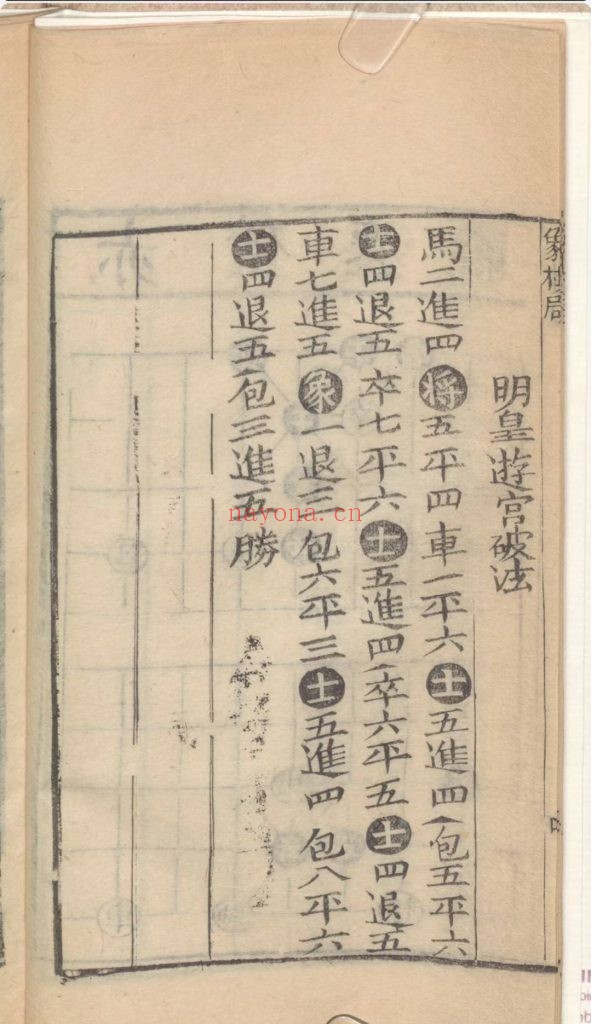 象棋局
明皇遊宮破法
馬二進四將五平四車一平六士五進四包五平六
士四退五卒七平六士五進四卒六平五士四退五
車七進五象一退三包六平三士五進四包八平六
士四退五包三進五勝
nayona.cn